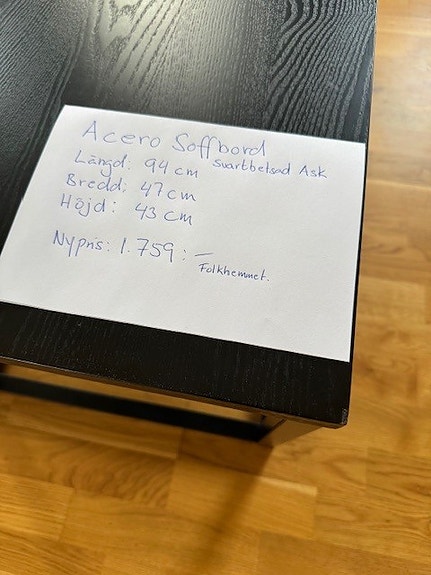 Acero Soffbord
Svartbetsad Ask
Längd: 94 cm
Bredd: 47 cm
Höjd: 43 cm
Nypris: 1.759:-
Folkhemmet.